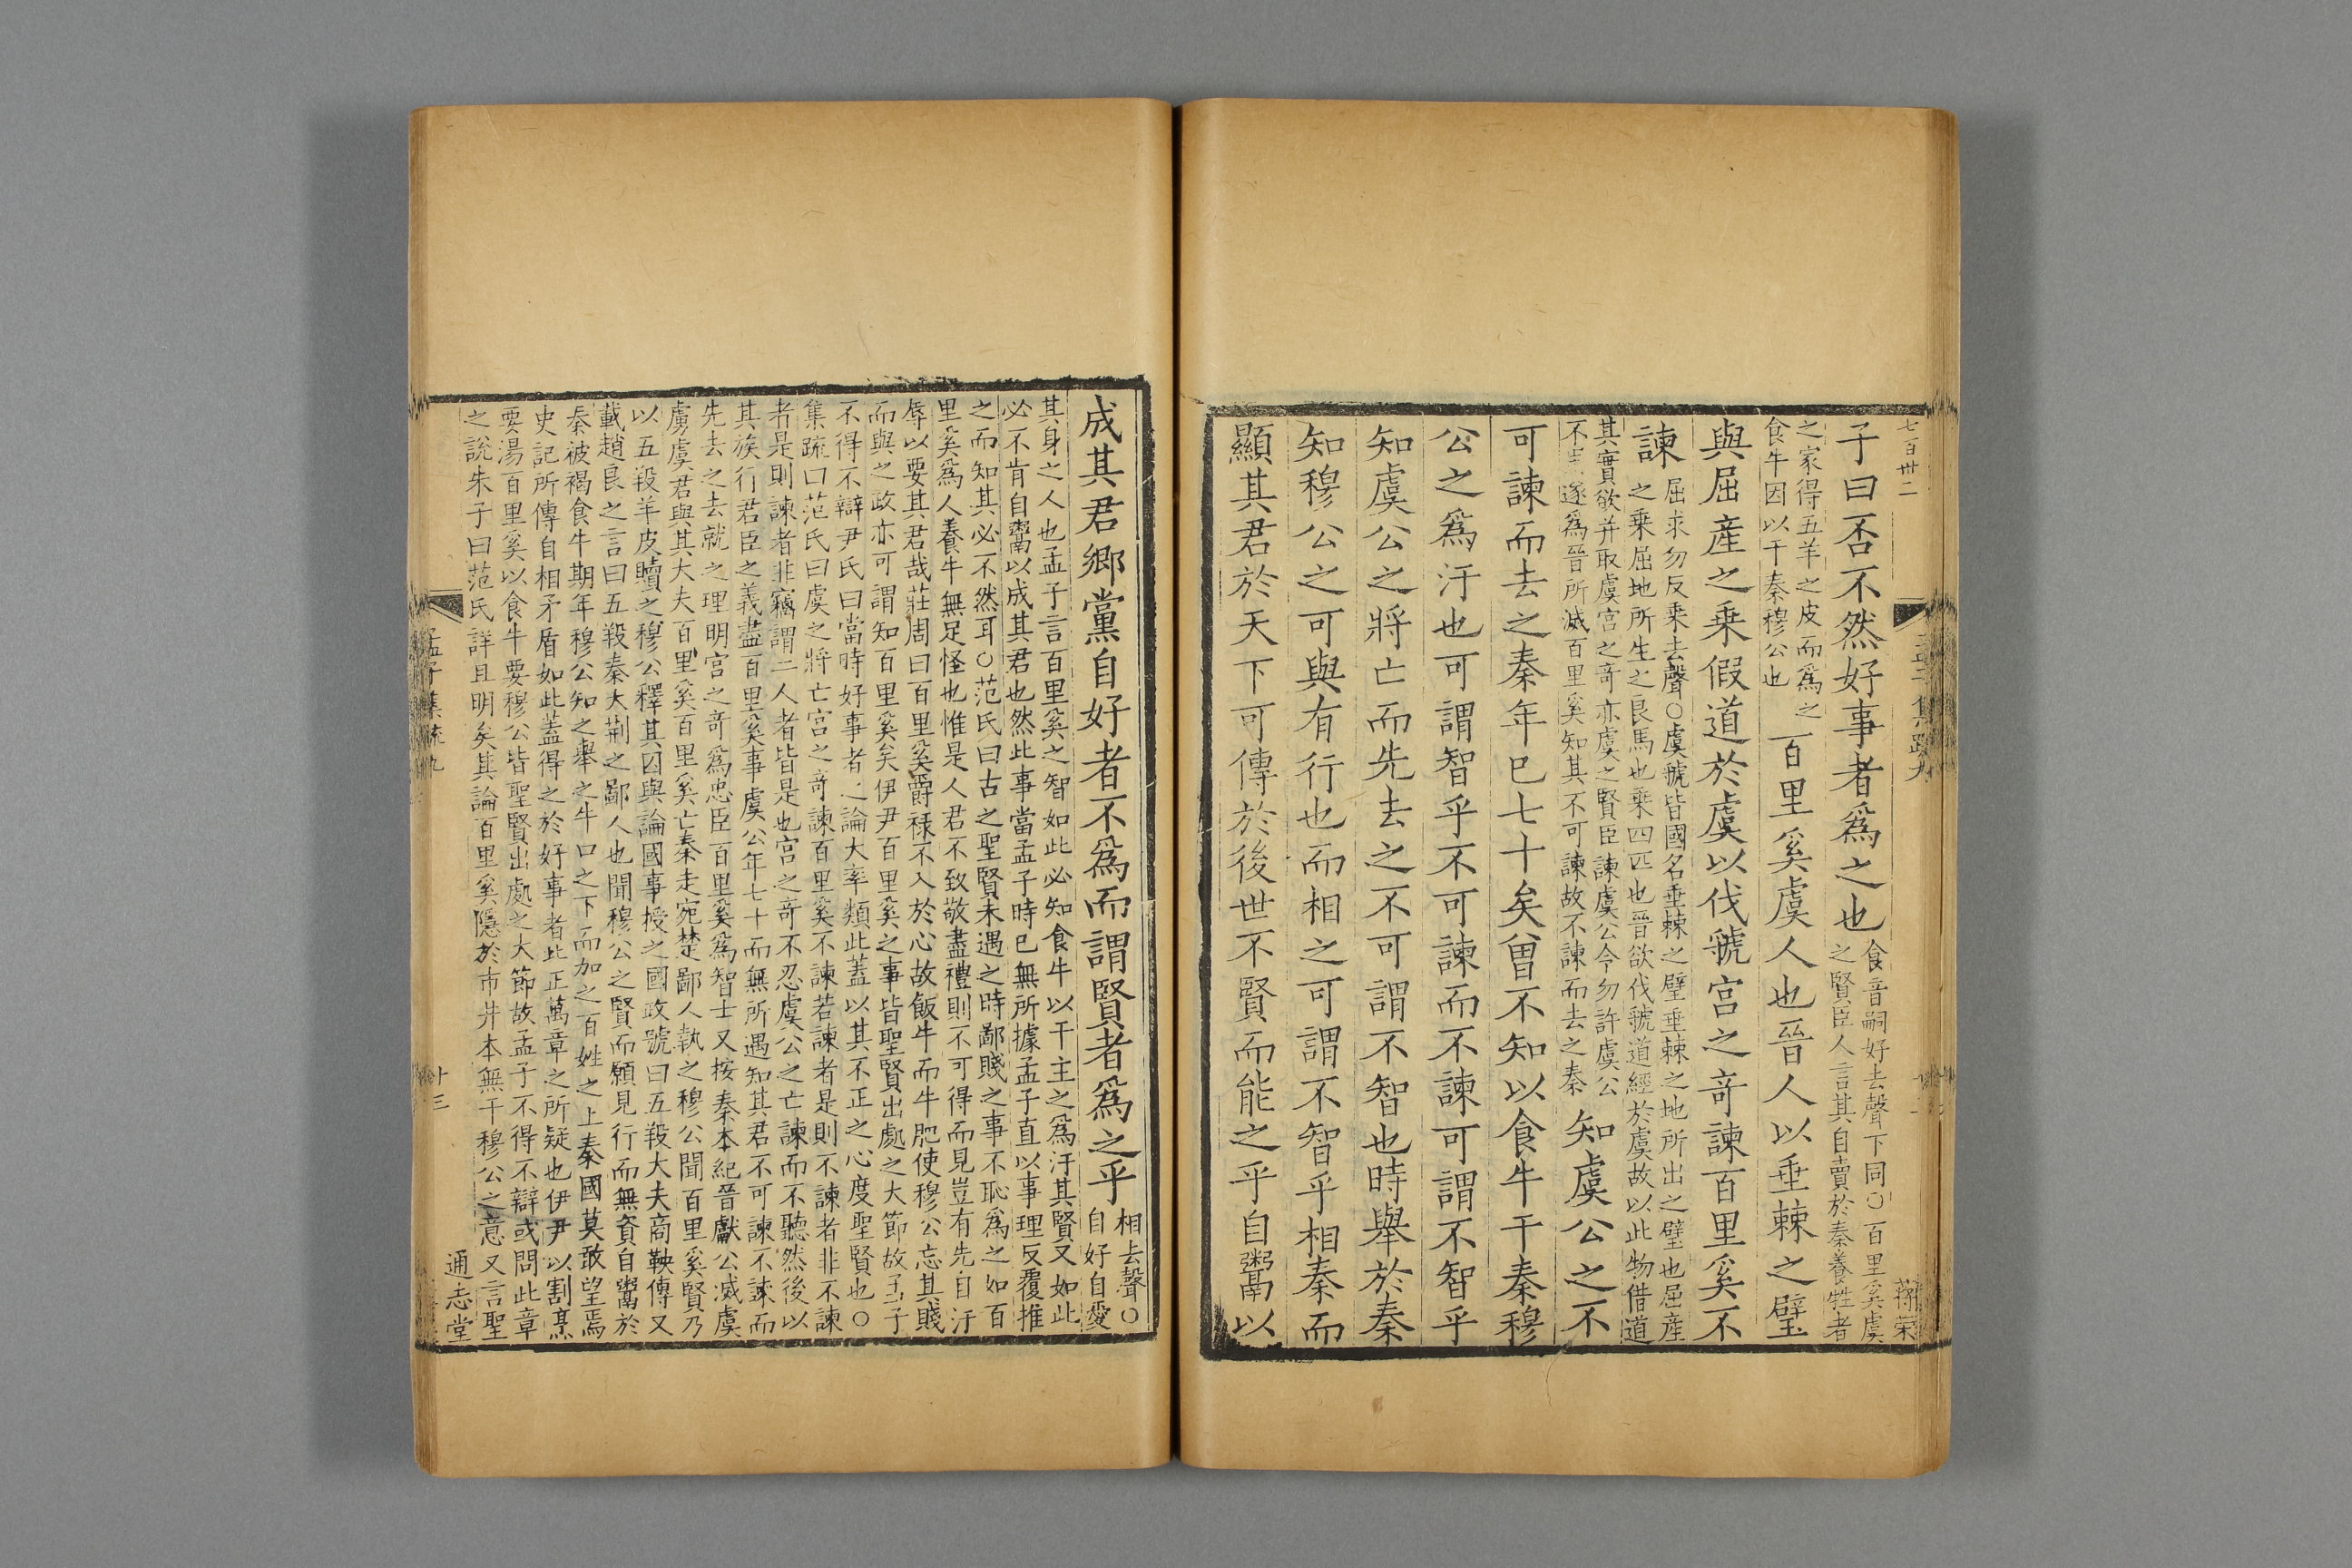 七百卅二
孟子集疏九
蔣榮
子曰否不然好事者為之也食音嗣好去聲下同○百里奚虞
之賢臣人言其自賣於秦養牲者
之家得五羊之皮而為之
食牛因以干秦穆公也百里奚虞人也晉人以垂棘之璧
與屈產之乗假道於虞以伐虢宮之奇諫百里奚不
諫屈求勿反乗去聲○虞虢皆國名垂棘之璧垂棘之地所出之璧也屈產
之乗屈地所生之良馬也乗四匹也晉欲伐虢道經於虞故以此物借道
其實欲并取虞宮之奇亦虞之賢臣諫虞公令勿許虞公
不遂為晉所滅百里奚知其不可諫故不諫而去之秦知虞公之不
可諫而去之秦年已七十矣曾不知以食牛干秦穆
公之為汙也可謂智乎不可諫而不諫可謂不智乎
知虞公之將亡而先去之不可謂不智也時舉於秦
知穆公之可與有行也而相之可謂不智乎相秦而
顯其君於天下可傳於後世不賢而能之乎自鬻以
成其君鄉黨自好者不為而謂賢者為之乎相去聲○
自好自愛
其身之人也孟子言百里奚之智如此必知食牛以干主之為汙其賢又如此
必不肯自鬻以成其君也然此事當孟子時已無所據孟子直以事理反覆推
之而知其必不然耳○范氏曰古之聖賢未遇之時鄙賤之事不恥為之如百
里奚為人養牛無足怪也惟是人君不致敬盡禮則不可得而見豈有先自汙
辱以要其君哉莊周曰百里奚爵祿不入於心故飯牛而牛肥使穆公忘其賤
而與之政亦可謂知百里奚矣伊尹百里奚之事皆聖賢出處之大節故孟子
不得不辯尹氏曰當時好事者之論大率類此蓋以其不正之心度聖賢也○
集疏曰范氏曰虞之將亡宮之奇諫百里奚不諫若諫者是則不諫者非不諫
者是則諫者非竊謂二人者皆是也宮之奇不忍虞公之亡諫而不聽然後以
其族行君臣之義盡百里奚事虞公年七十而無所遇知其君不可諫不諫而
先去之去就之理明宮之奇為忠臣百里奚為智士又按秦本紀晉獻公滅虞
虜虞君與其大夫百里奚百里奚亡秦走宛楚鄙人執之穆公聞百里奚賢乃
以五羖羊皮贖之穆公釋其囚與論國事授之國政號曰五羖大夫商鞅傳又
載趙良之言曰五羖秦大荆之鄙人也聞穆公之賢而願見行而無資自鬻於
秦被褐食牛期年穆公知之舉之牛口之下而加之百姓之上秦國莫敢望焉
史記所傳自相矛盾如此蓋得之於好事者此正萬章之所疑也伊尹以割烹
要湯百里奚以食牛要穆公皆聖賢出處之大節故孟子不得不辯或問此章
之說朱子曰范氏詳且明矣其論百里奚隱於市井本無干穆公之意又言聖
孟子集疏九
十三
通志堂